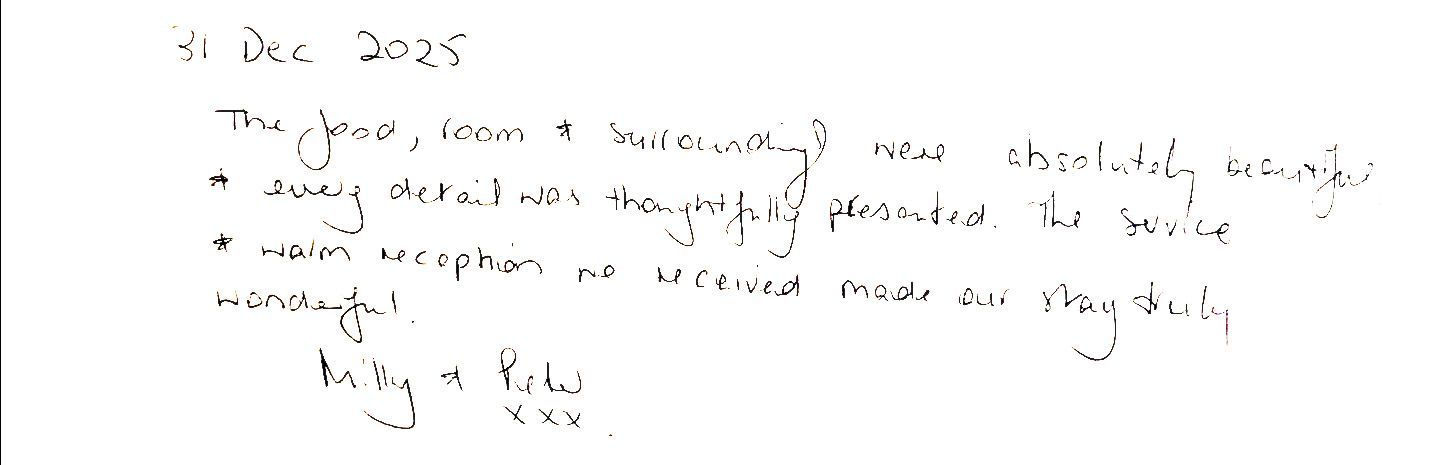 31 Dec 2025
The food, room & surroundings were absolutely beautiful
& every detail was thoughtfully presented. The service
& warm reception we received made our stay truly
wonderful.
Milly & Peter
xxx